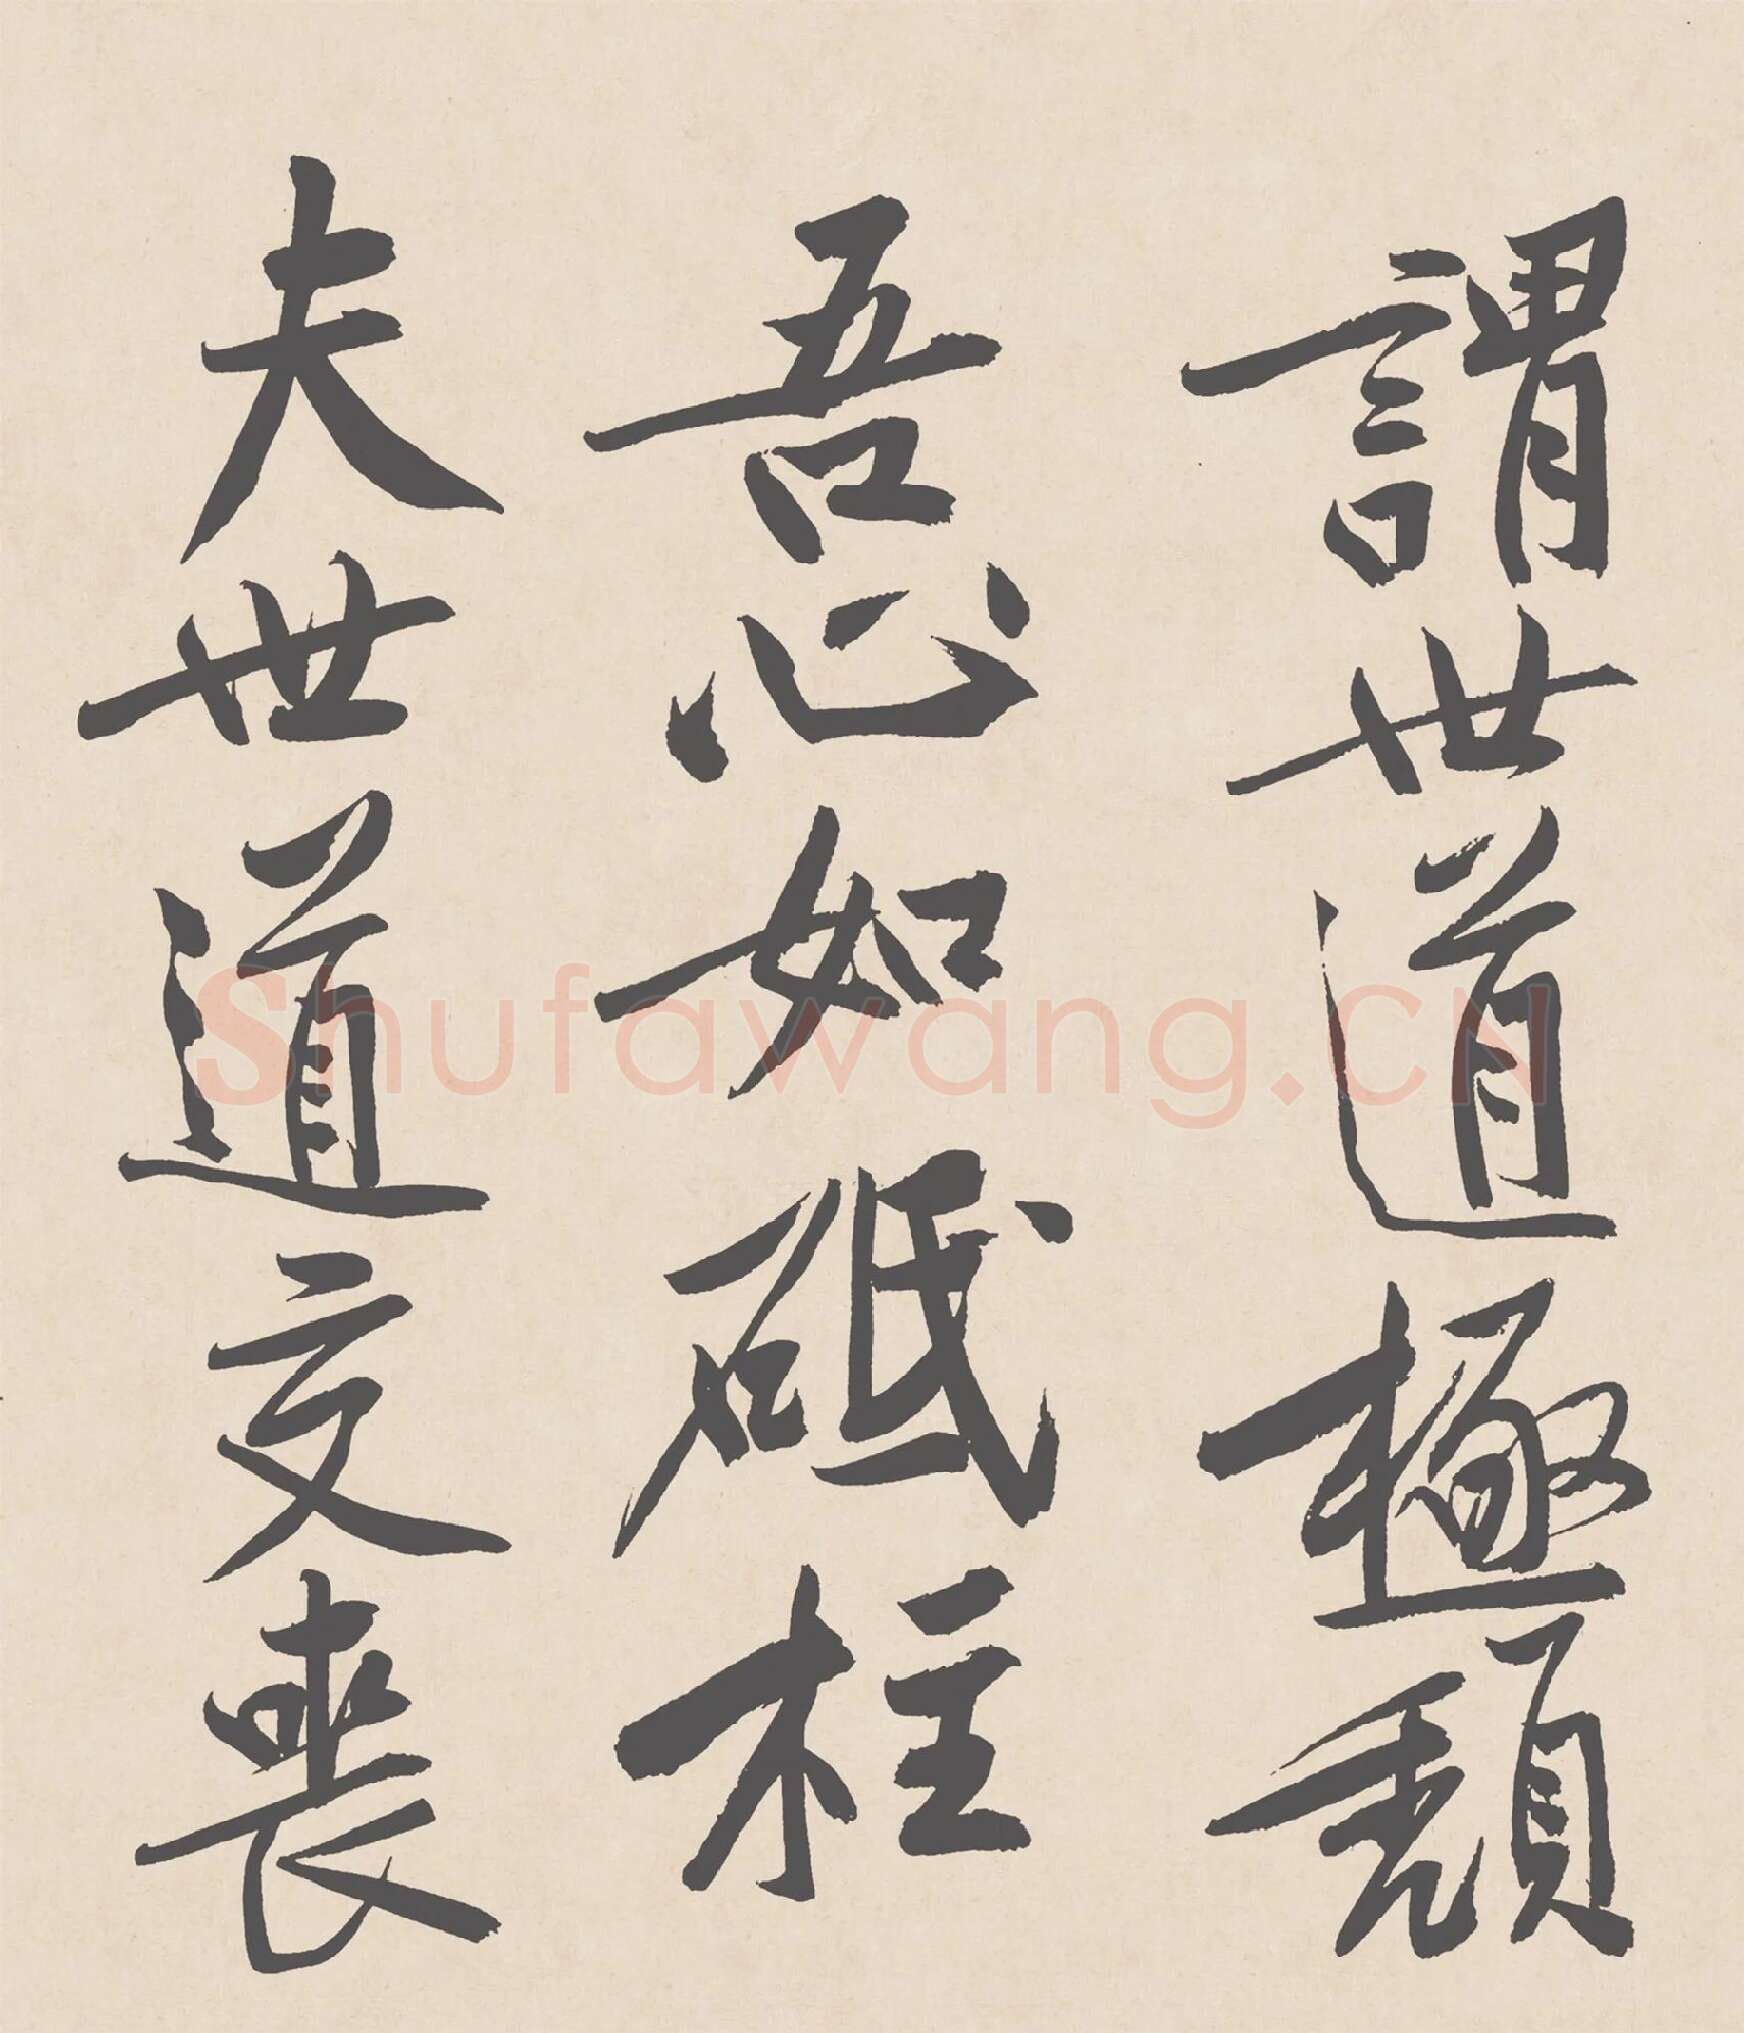 謂世道極頹
吾心如砥柱
夫世道交喪
Shufawang.CN